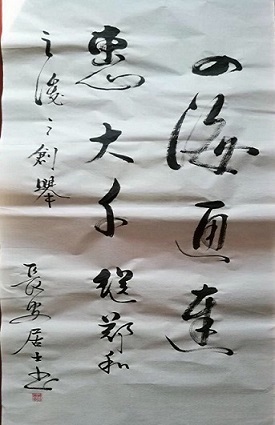 四海通達
惠大千繼鄭和
之後之創舉
長安居士書